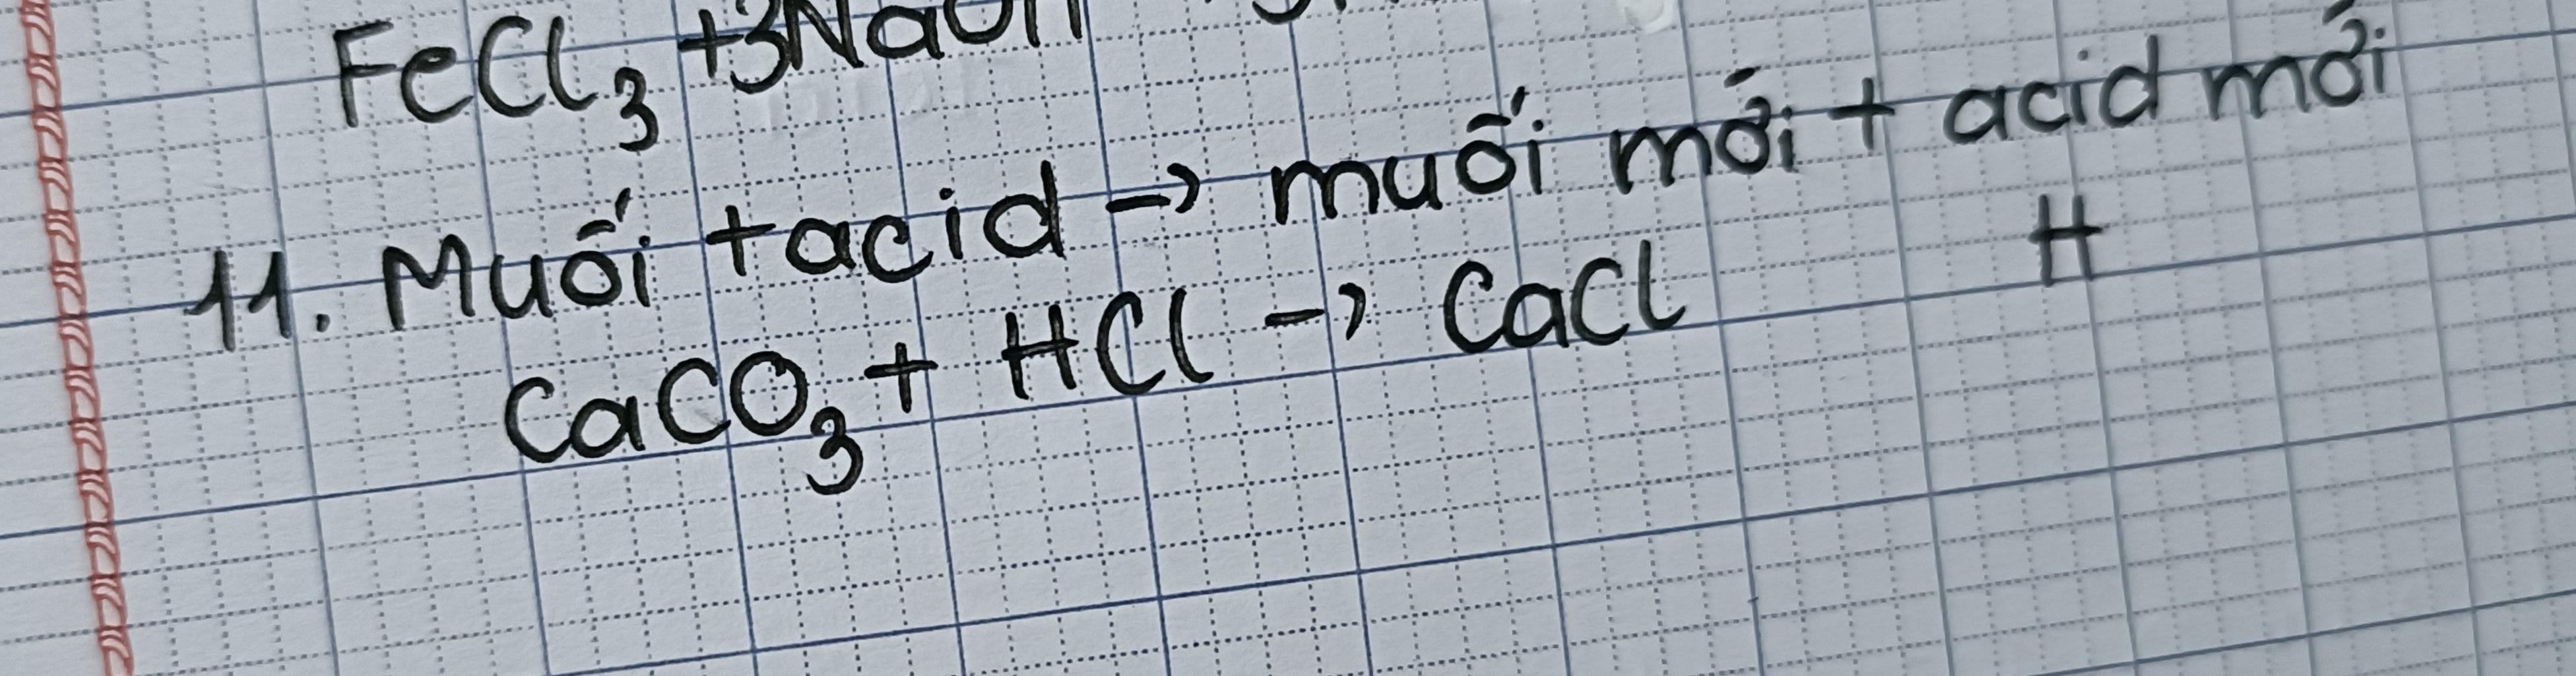 FeCl₃ +3NaOH
11. Muối + acid → muối mới + acid mới
CaCO₃ + HCl → CaCl H